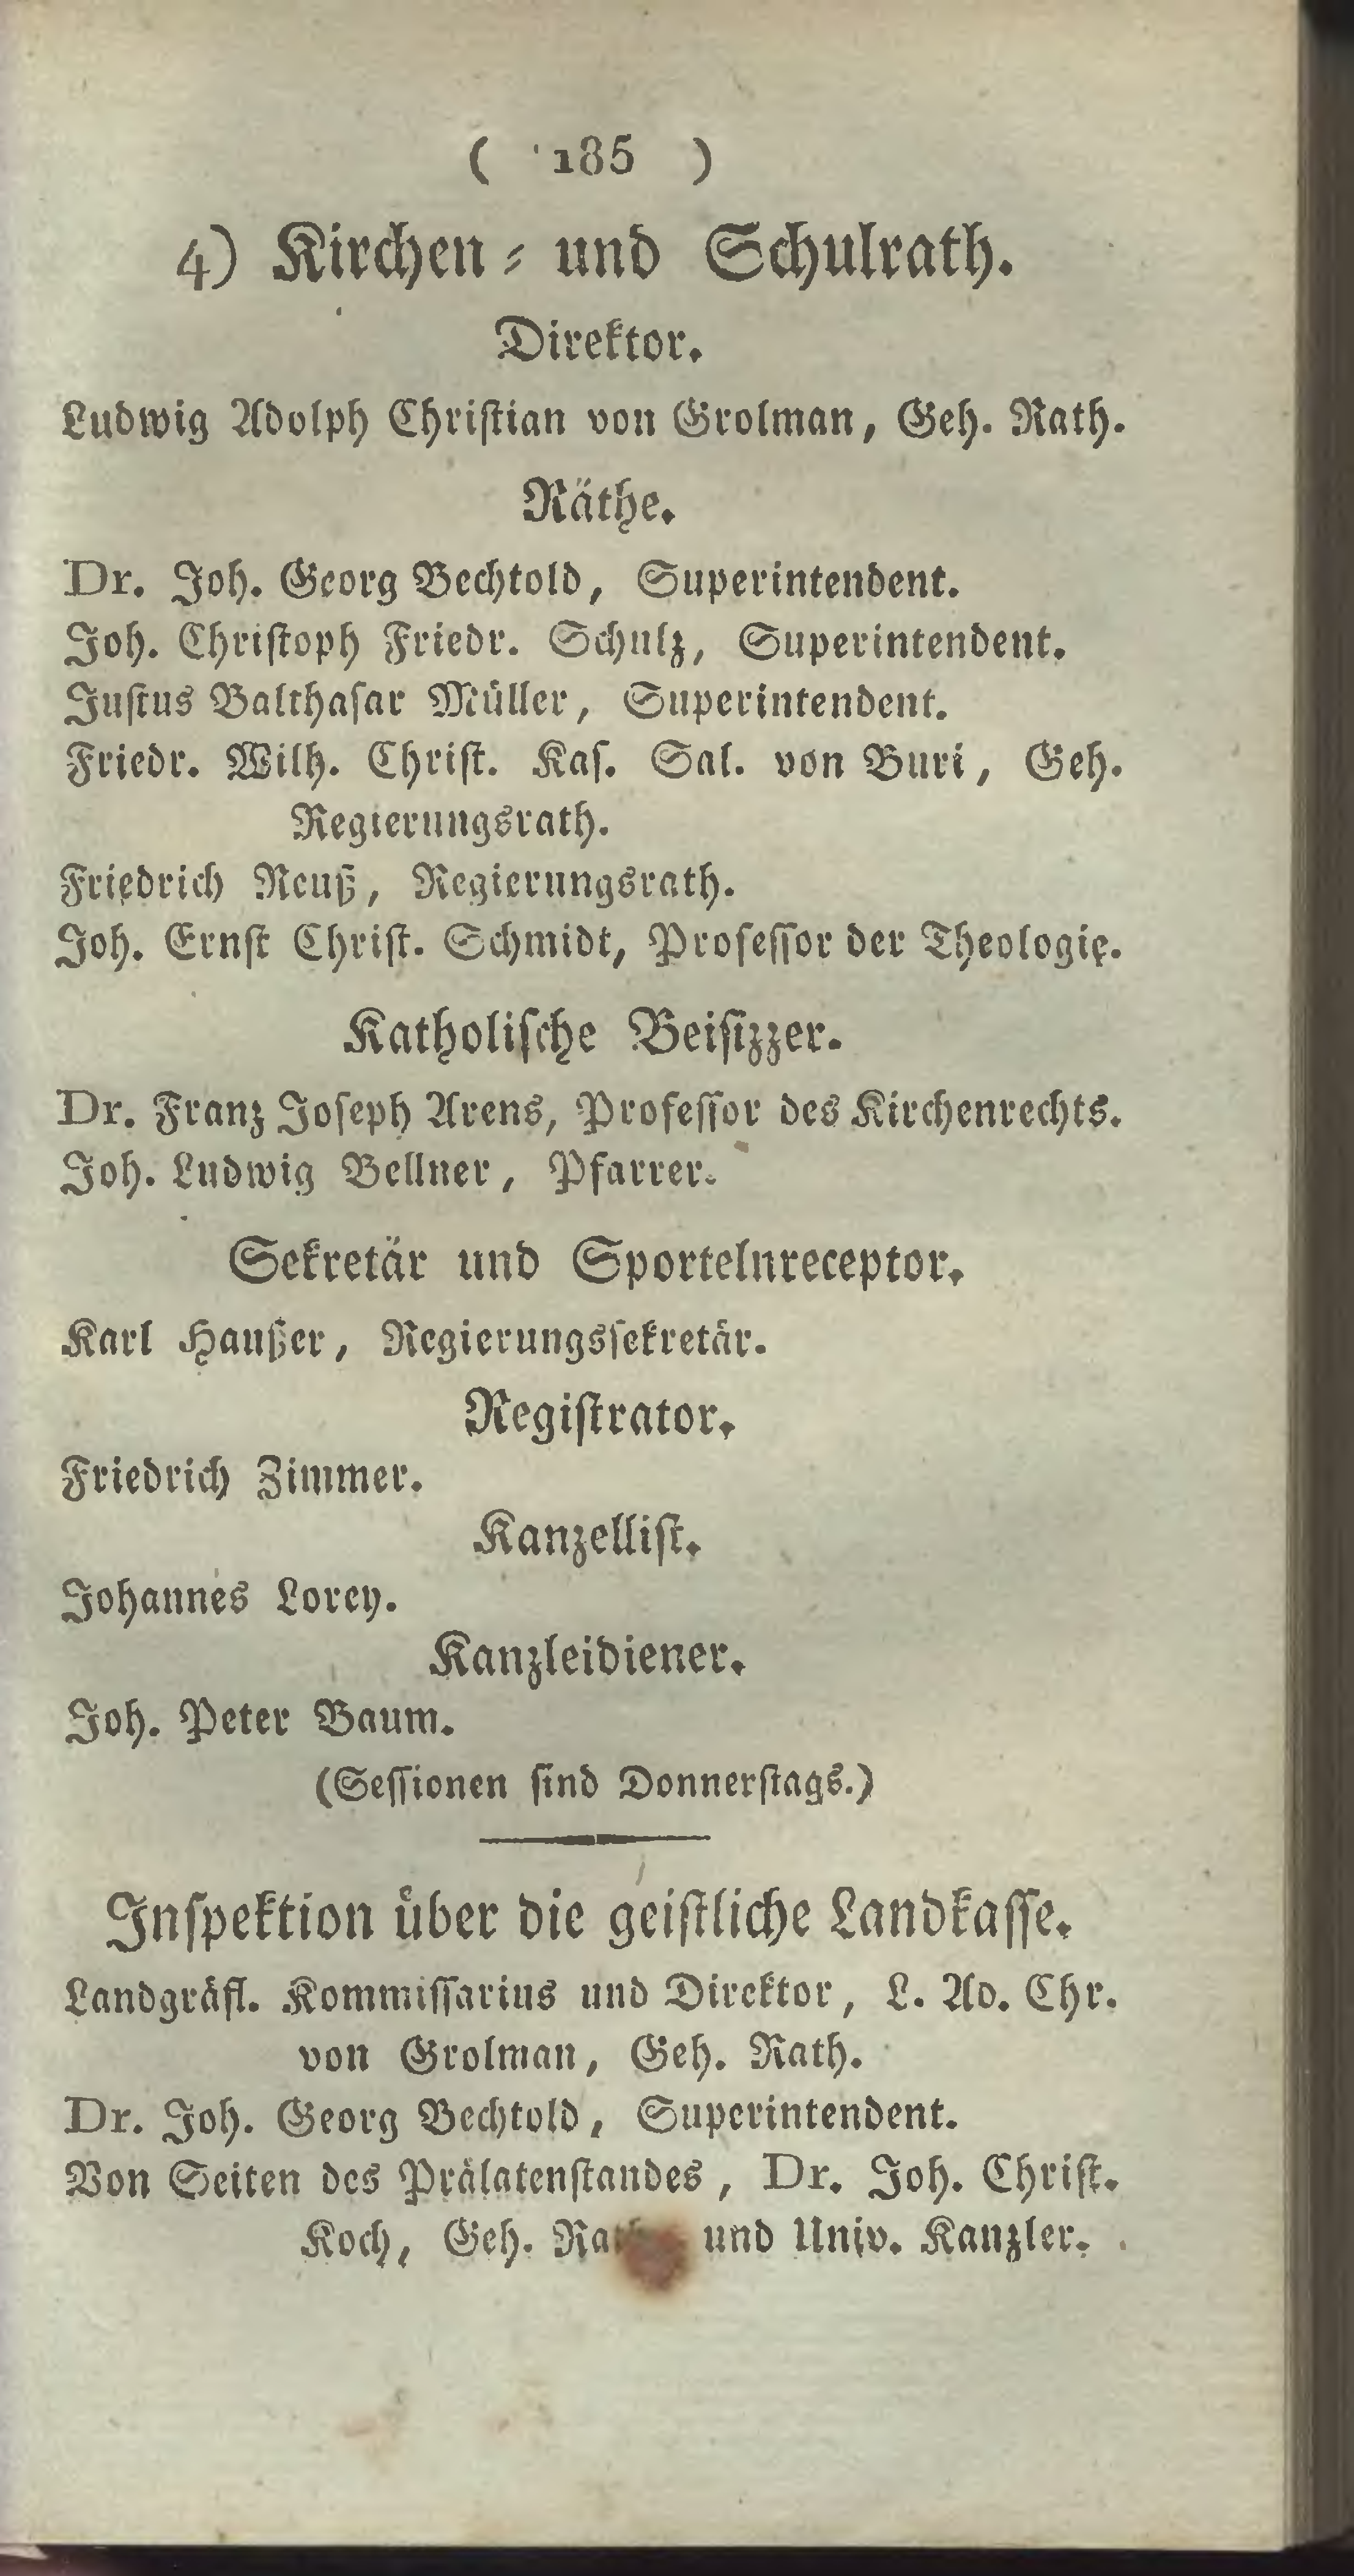 ( 185 )
4) Kirchen- und Schulrath.
Direktor.
Ludwig Adolph Christian von Grolman, Geh. Rath.
Räthe.
Dr. Joh. Georg Bechtold, Superintendent.
Joh. Christoph Friedr. Schulz, Superintendent.
Justus Balthasar Müller, Superintendent.
Friedr. Wilh. Christ. Kas. Sal. von Buri, Geh.
Regierungsrath.
Friedrich Reuß, Regierungsrath.
Joh. Ernst Christ. Schmidt, Professor der Theologie.
Katholische Beisizzer.
Dr. Franz Joseph Arens, Professor des Kirchenrechts.
Joh. Ludwig Bellner, Pfarrer.
Sekretär und Sportelnreceptor.
Karl Haußer, Regierungssekretär.
Registrator.
Friedrich Zimmer.
Kanzellist.
Johannes Lorey.
Kanzleidiener.
Joh. Peter Baum.
(Sessionen sind Donnerstags.)
Inspektion über die geistliche Landkasse.
Landgräfl. Kommissarius und Direktor, L. Ad. Chr.
von Grolman, Geh. Rath.
Dr. Joh. Georg Bechtold, Superintendent.
Von Seiten des Prälatenstandes, Dr. Joh. Christ.
Koch, Geh. und Univ. Kanzler.